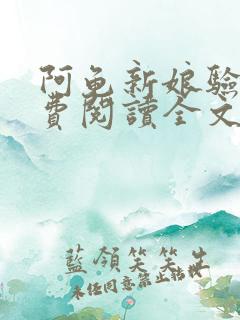 阿龟新娘驗
費閱讀全文
藍領笑笑生
未经同意禁止转载